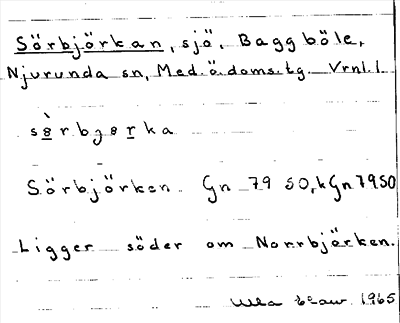 Sörbjörkan, sjö, Baggböle,
Njurunda sn, Med. ö. doms. tg. Vrnl. 1
sèrbjerka
Sörbjörken Gn 79 50, k Gn 7950
Ligger söder om Norrbjörken.
1965